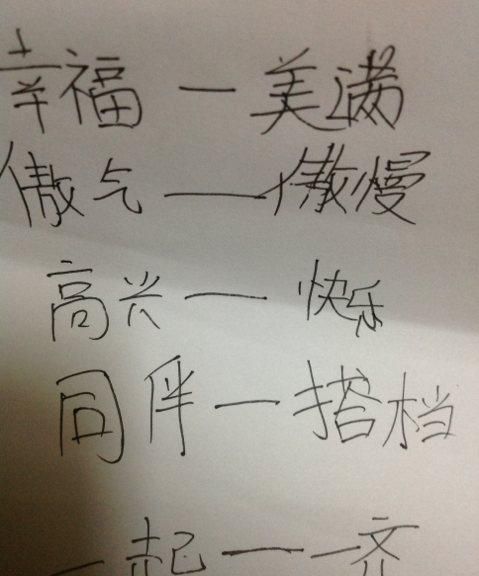 幸福—美满
傲气—傲慢
高兴—快乐
同伴—搭档
一起—一齐